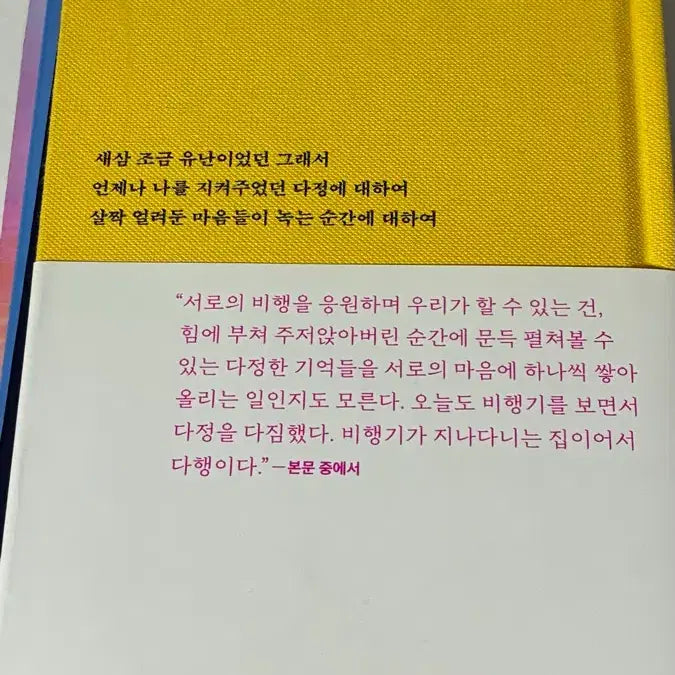 새삼 조금 유난이었던 그래서
언제나 나를 지켜주었던 다정에 대하여
살짝 얼려둔 마음들이 녹는 순간에 대하여
“서로의 비행을 응원하며 우리가 할 수 있는 건,
힘에 부쳐 주저앉아버린 순간에 문득 펼쳐볼 수
있는 다정한 기억들을 서로의 마음에 하나씩 쌓아
올리는 일인지도 모른다. 오늘도 비행기를 보면서
다정을 다짐했다. 비행기가 지나다니는 집이어서
다행이다.”—본문 중에서